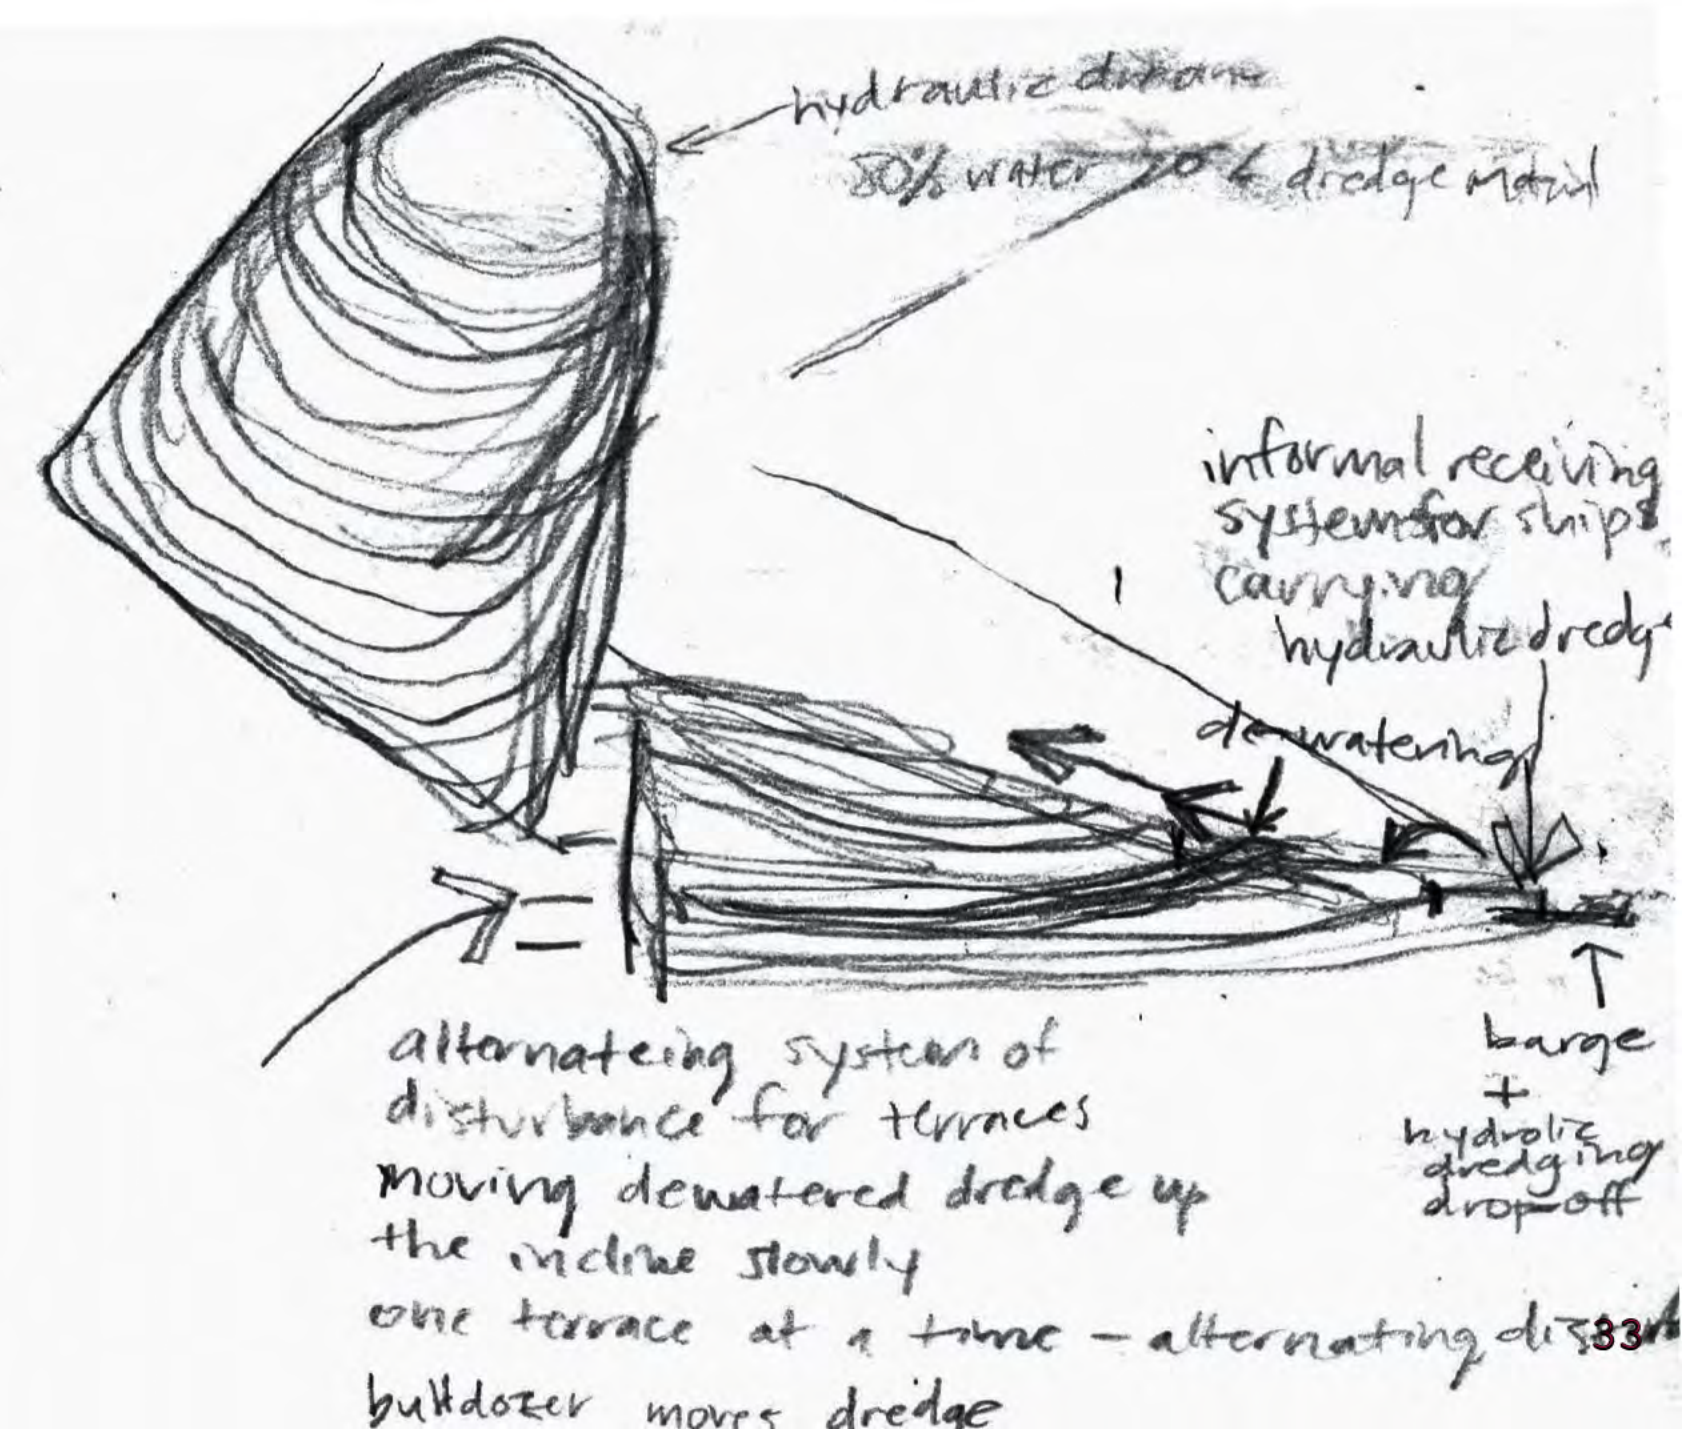 hydraulic
80% water 20 dredge material
informal receiving
systems for ships
carrying
hydraulic dredge
dewatering
barge
+
hydrolic
dredging
drop-off
alternateing system of
disturbance for terraces
moving dewatered dredge up
the incline slowly
one terrace at a time - alternating
33
bulldozer moves dredge